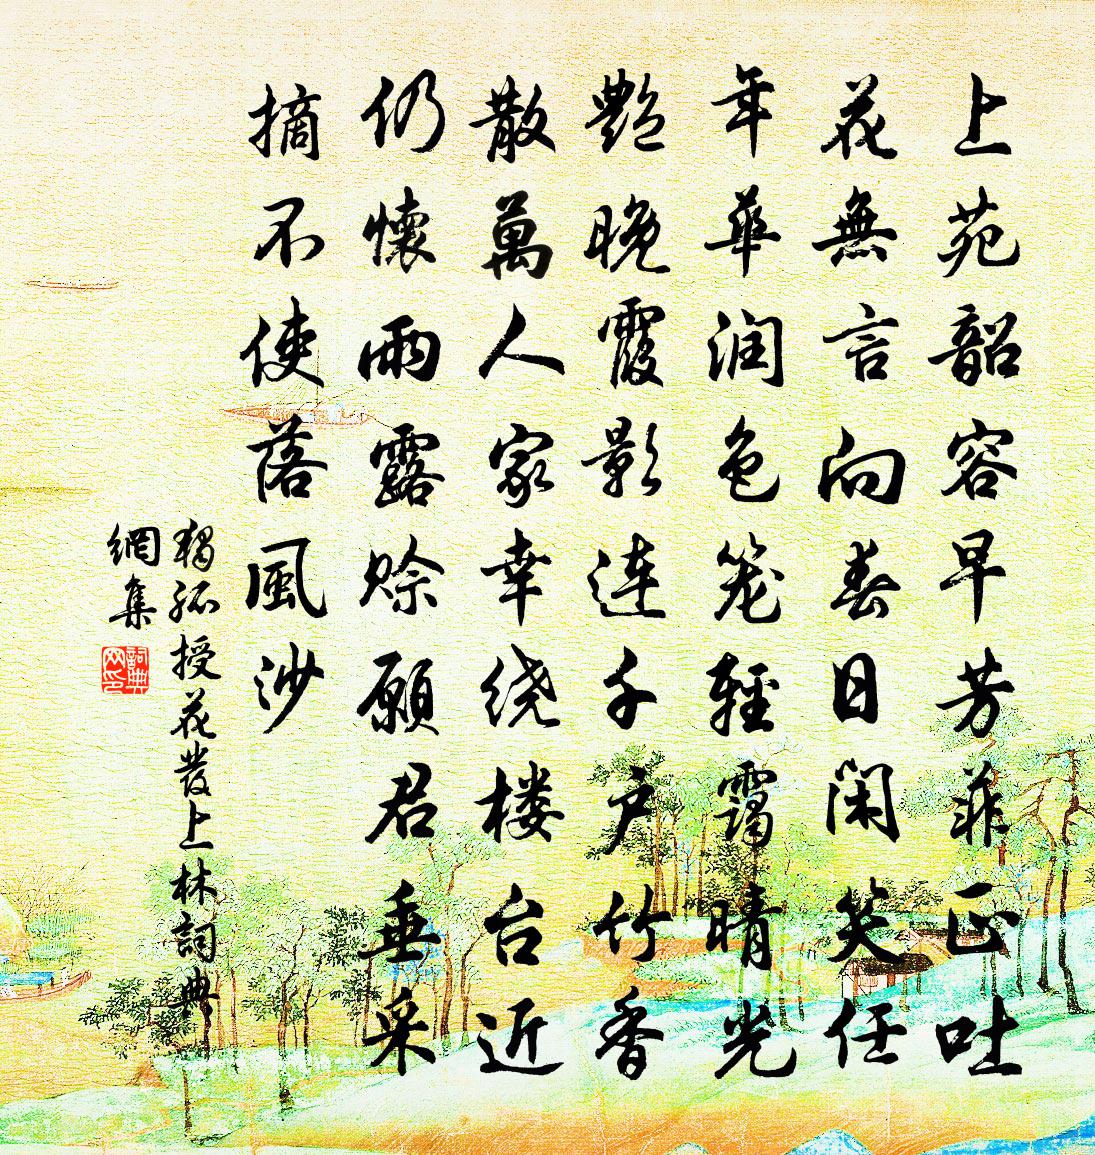 上苑韶容早芳菲正吐
花無言向春日閑笑任
年華润色笼輕靄晴光
豔晚霞影連千户竹香
散萬人家幸绕楼台近
仍懷雨露赊願君垂采
摘不使落風沙
獨孤授花發上林詞典
網集
詞典
网印